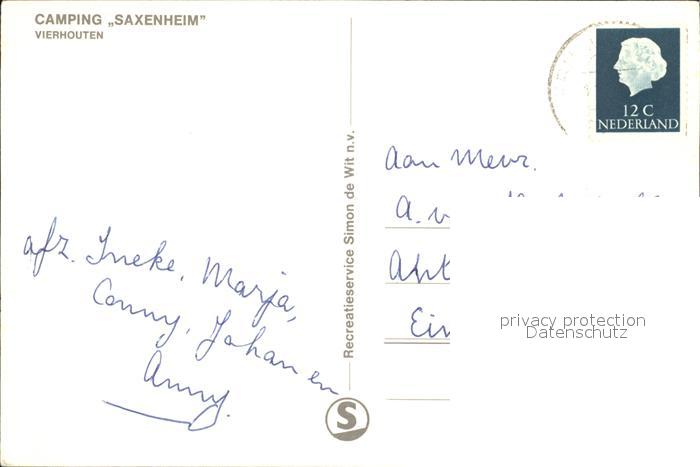 CAMPING „SAXENHEIM”
VIERHOUTEN
afz. Ineke, Marja,
Conny, Johan en
Anny.
Recreatieservice Simon de Wit n.v.
S
12 C
NEDERLAND
Aan Mevr.
A. v
privacy protection
Datenschutz